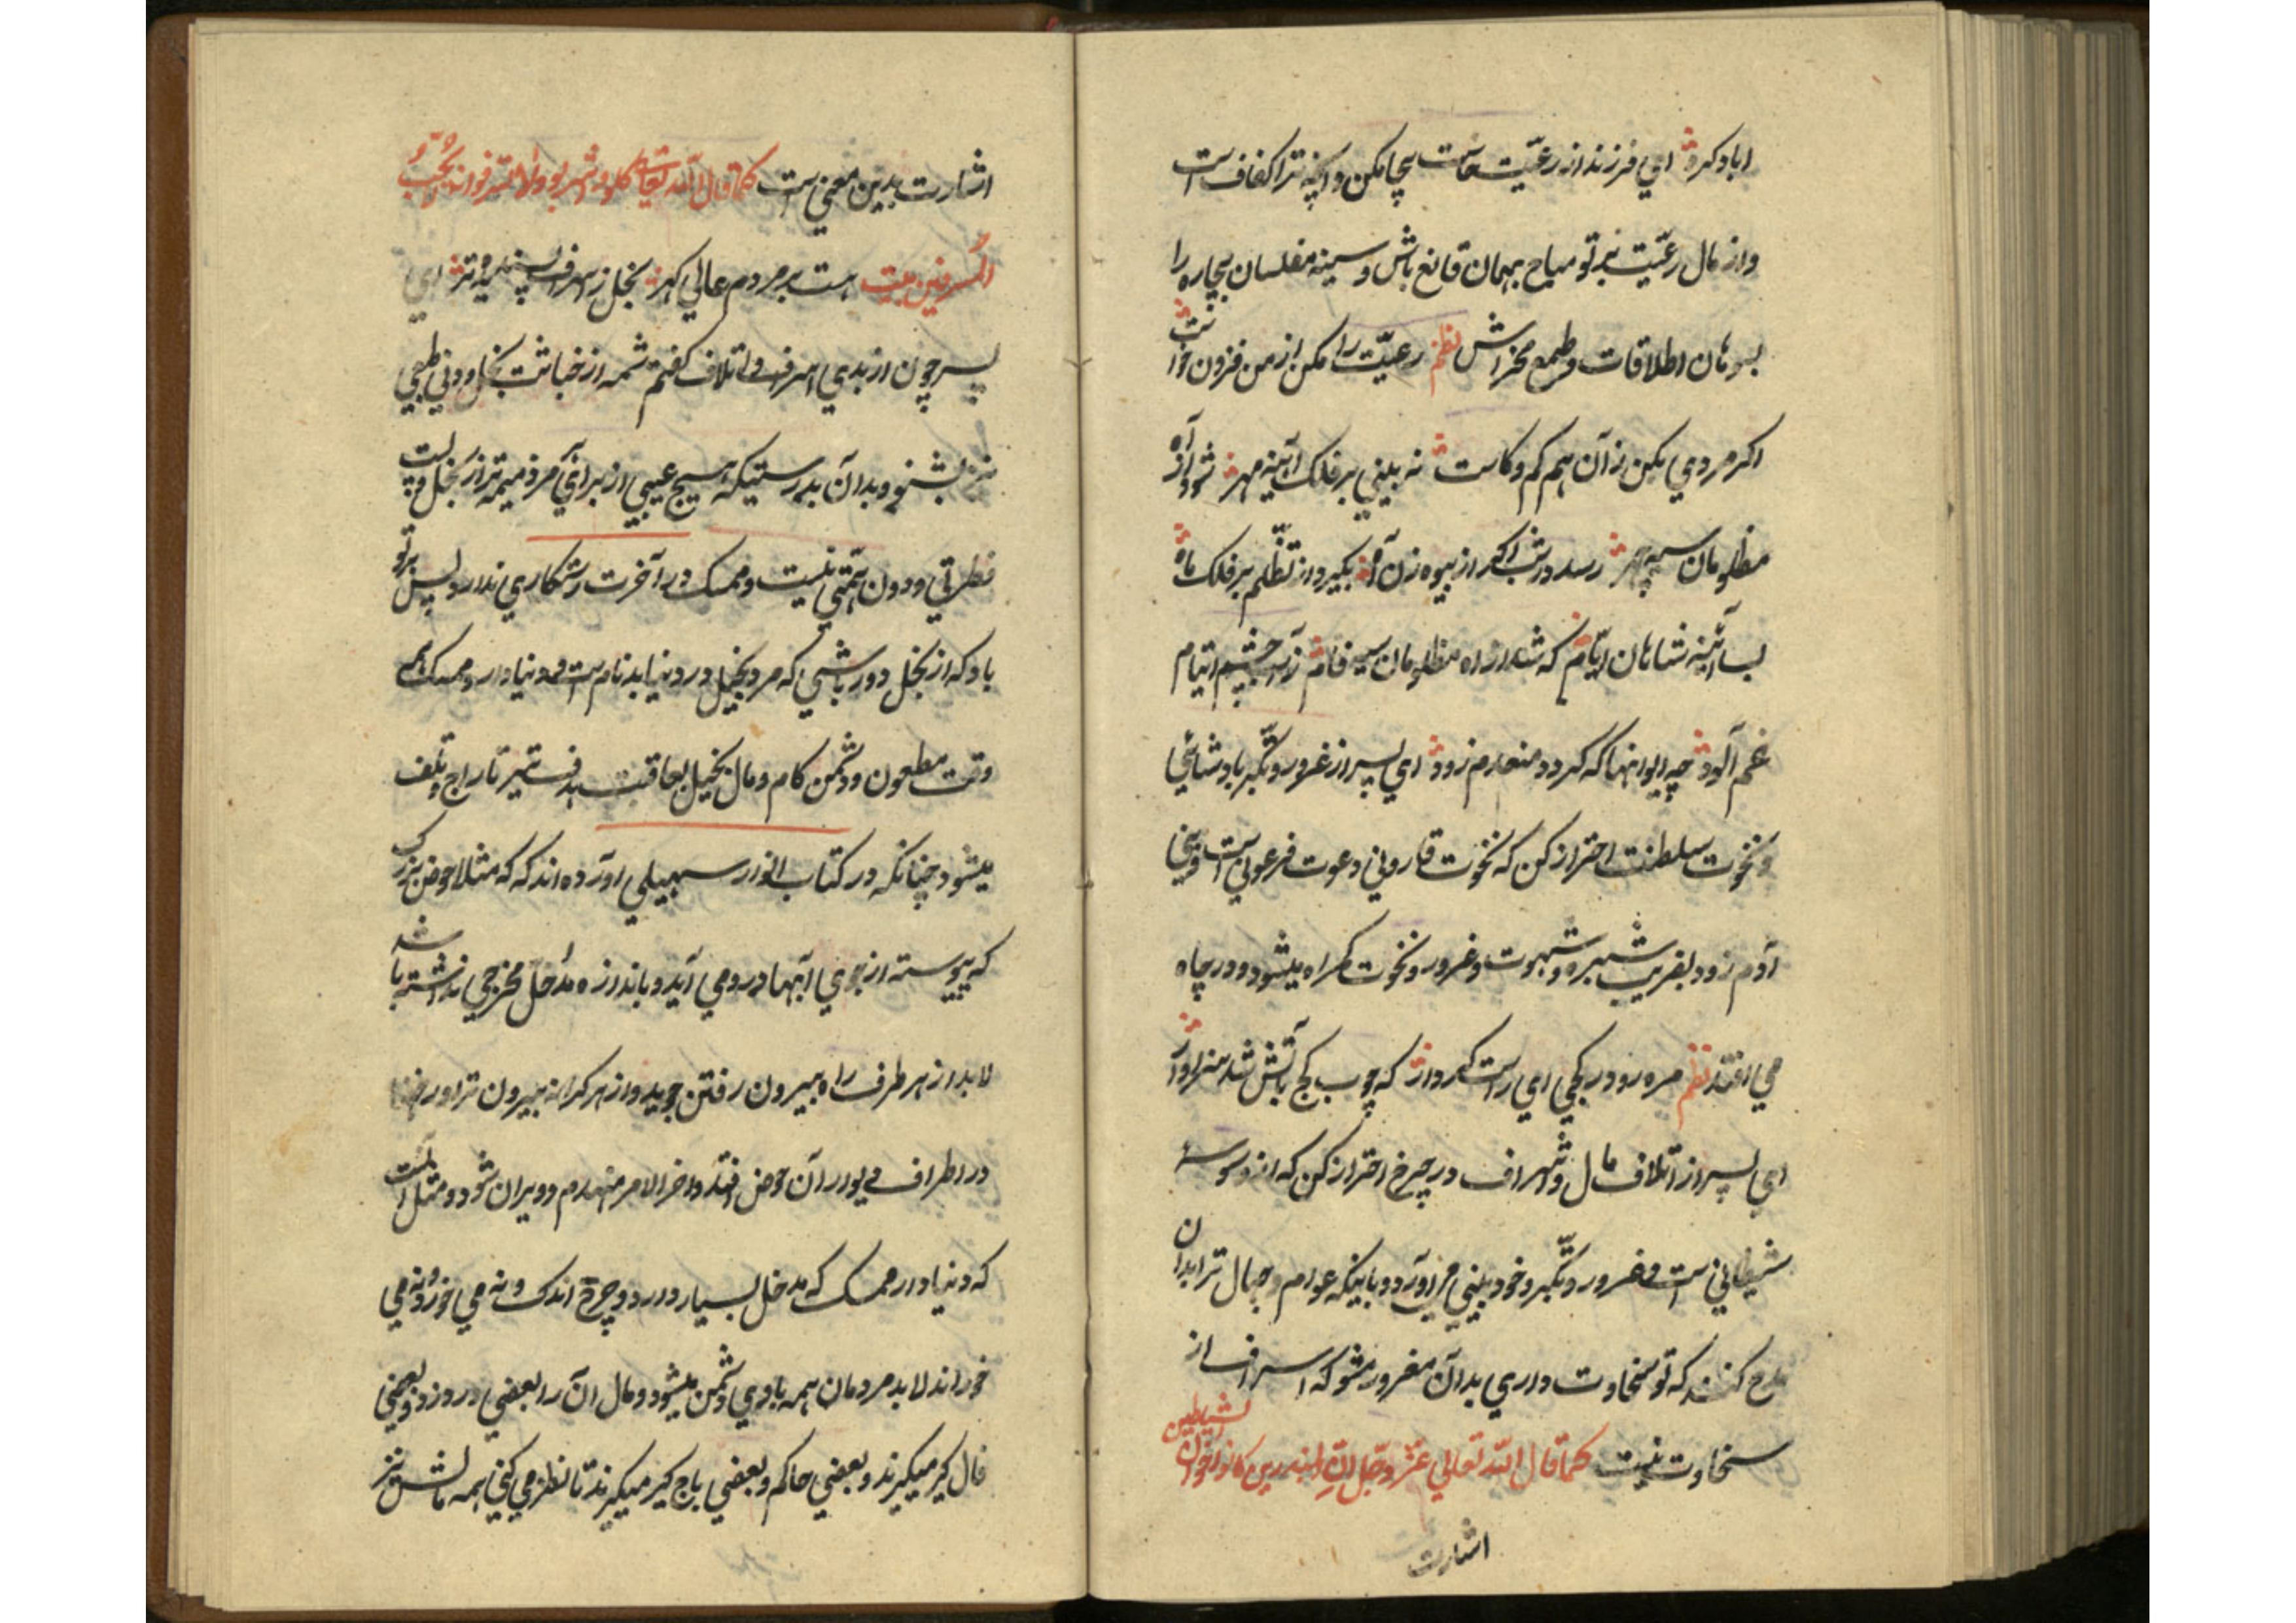 اباد کرد ای فرزند از رعیت بیجا مکن و انچه ترا کفاف است
و از مال رعیت بر تو مباح بهمان قانع باش و سینه مفلسان بیچاره را
بسوهان اطلاقات و طمع مخراش نظم رعیت را مکن از من فزون خواست
اکر مردی مکن زآن هم کم و کاست نه بینی بر فلک ائینه مهر شود از آه
مظلومان سیه چهر رسد در شب اکر از بیوه زن آه بکیرد از تظلم بر فلک ماه
بسا آئینه شاهان ایام که شد از اه مظلومان سیه فام ز آب چشم ایتام
غم آلود چه ایوانها که کردد منعدم زود ای پسر از غرور و تکبر بادشاهی
و نخوت سلطنت احتراز کن که نخوت قارونی دعوت فرعونی است و بنی
آدم زود بفریب و شهوت و غرور و نخوت کمراه میشود و در چاه
می افتد نظم مرو در کجی ای راست کردار که چوب کج بآتش شد سزاوار
ای پسر از اتلاف مال و اسراف در خرج احتراز کن که از وسوسهٔ
شیطانی است و غرور و تکبر و خود بینی می اورد و باینکه عوام و جهال ترا بدان
مدح کنند که تو سخاوت داری بدآن مغرور مشو که اسراف از
سخاوت نیست کما قال الله تعالی عز و جل ان المبذرین کانوا اخوان الشیاطین
اشارت
اشارت بدین معنی است کما قال الله تعالی کلوا و اشربوا ولا تسرفوا انه لا یحب
المسرفین بیت هست بر مردم عالی کهر بخل ز اسراف پسندیده تر ای
پسر چون از بدی اسراف و اتلاف کفتم شمه از خباثت بخل و دنی طبعی
نیز بشنو و بدآن بدرستیکه هیچ عیبی از برای مرد ذمیمه تر از بخل و پست
فطرتی و دون همتی نیست و ممسک در آخرت رستکاری ندارد پس بر تو
باد که از بخل دور باشی که مرد بخیل در دنیا بدنام است و دنیادار ممسک همه
وقت مطعون و دشمن کام و مال بخیل بعاقبت هدف تیر تاراج و تلف
میشود چنانکه در کتاب انوار سهیلی اورده اند که مثلا حوض بزرک
که پیوسته از جوی آبها درو می آید و باندازه مدخل مخرجی نداشته باشد
لابد از هر طرف راه بیرون رفتن جوید و از هر کرانه بیرون تراود رخنها
در اطراف دیوار آن حوض افتد و اخر الامر منهدم و ویران شود و مثل است
که دنیادار ممسک که مدخل بسیار دارد و خرج اندک و نه می خورد و نه می
خوراند لابد مردمان همه با وی دشمن میشود و مال آن را بعضی در دزد و بعضی
فال کیر میکیرند و بعضی حاکم و بعضی باج کیر میکیرند تا نظر می کنی همه مالش نیز